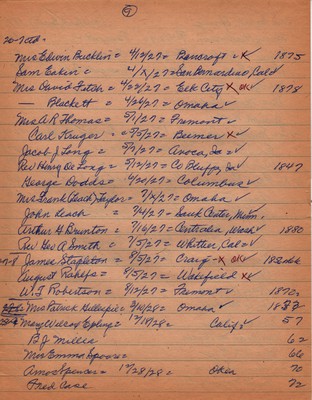 9
Mrs Edwin Bucklin = 4/12/27 = Bancroft ✓ x 1875
Sam Eakin = 4/ /27 = San Bernardino, Cal ✓
Mrs David Fitch = 4/22/27 = Elk City x ok ✓ 1878
— Blackett = 4/24/27 = Omaha ✓
Mrs A R Thomas = 5/1/27 = Fremont ✓
Carl Kruger = 5/5/27 = Beemer x ✓
Jacob J Long = 5/9/27 = Avoca, Ia = ✓
Rev Henry DeLong = 5/12/27 = Co Bluffs, Ia ✓ 1847
George Dodds = 6/20/27 = Columbus ✓
Mrs Frank Taylor = 7/4/27 = Omaha ✓
John Leach = 7/4/27 = Sauk Center, Minn. ✓
Arthur H Brunton = 7/16/27 = Centralia, Wash ✓ 1880
Rev Geo A Smith = 7/5/27 = Whittier, Cal = ✓
James Stapleton = 8/5/27 = Craig x ok ✓
August = 8/5/27 = Wakefield x ✓
W. F Robertson = 8/12/27 = Fremont ✓ 1870
Mrs Patrick Gillespie = 3/10/28 = Omaha ✓
Mary Wilson = 12/17/28 = Calif ✓ 57
B. J. Miller 62
Mrs Emma Spoor = 66
Amos Spencer = 12/28/28 = Okla 70
Fred Case 72